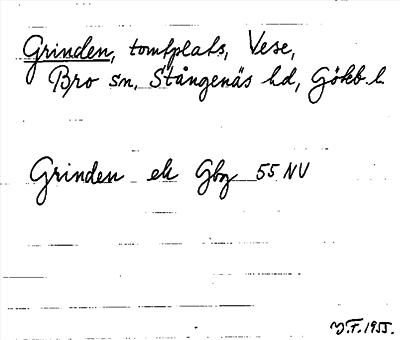 Grinden, tomtplats, Vese,
Bro sn, Stångenäs hd, Götb. l.
Grinden ek Gbg 55 NV
J.F. 1955.